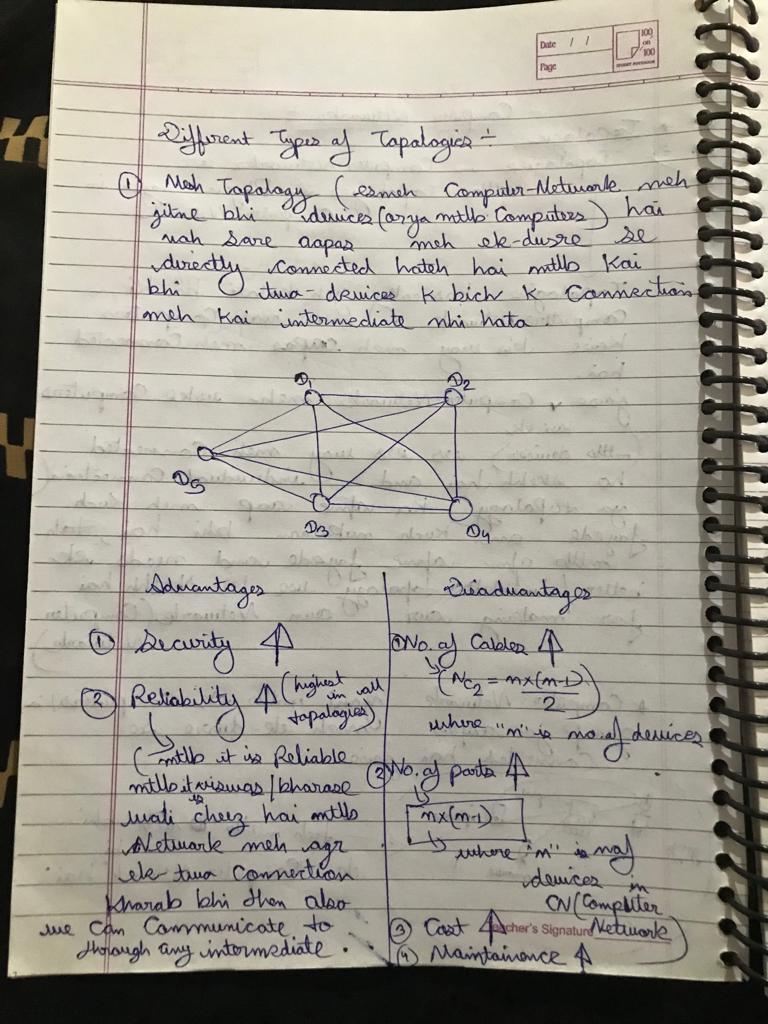 Date / /
Page
100 on 100
Different Types of Tapalogies ÷
① Mesh Tapalogy (esmeh Computer-Network meh
jitne bhi devices (arya mtlb Computers) hai
vah sare aapas meh ek-dusre se
directly connected hateh hai mtlb Kai
bhi twa-devices k bich k Connection
meh kai intermediate nhi hata.
D1 D2
D5
D3 D4
Advantages
① Security ↑
② Reliability ↑ (highest in all tapalogies)
(mtlb it is Reliable
mtlb it is viswas/bharase
wali cheez hai mtlb
Network meh agr
ek twa Connection
kharab bhi then also
we can Communicate to
thorough any intermediate.
Disadvantages
① No. of Cables ↑
(NC2 = n×(n-1)/2)
where "n" is no. of devices
② No. of parts ↑
n×(n-1)
where "n" is no. of
devices in
CN (Computer
Network)
③ Cast ↑
Teacher's Signature
④ Maintainence ↑